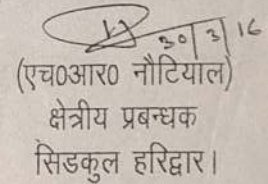 30/3/16
(एच0आर0 नौटियाल)
क्षेत्रीय प्रबन्धक
सिडकुल हरिद्वार।